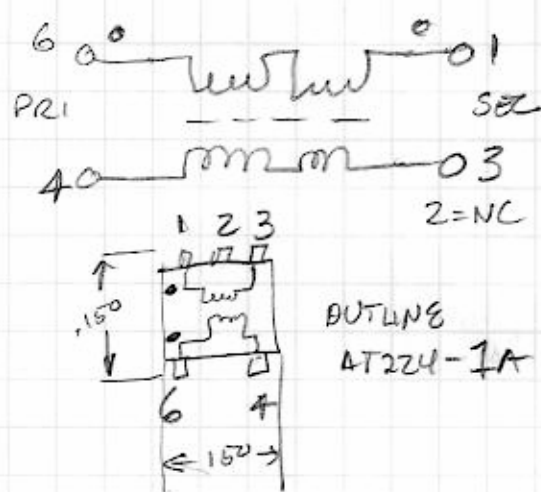 6 1
PRI SEC
4 3
2=NC
1 2 3
.150
OUTLINE
AT224-1A
6 4
.150